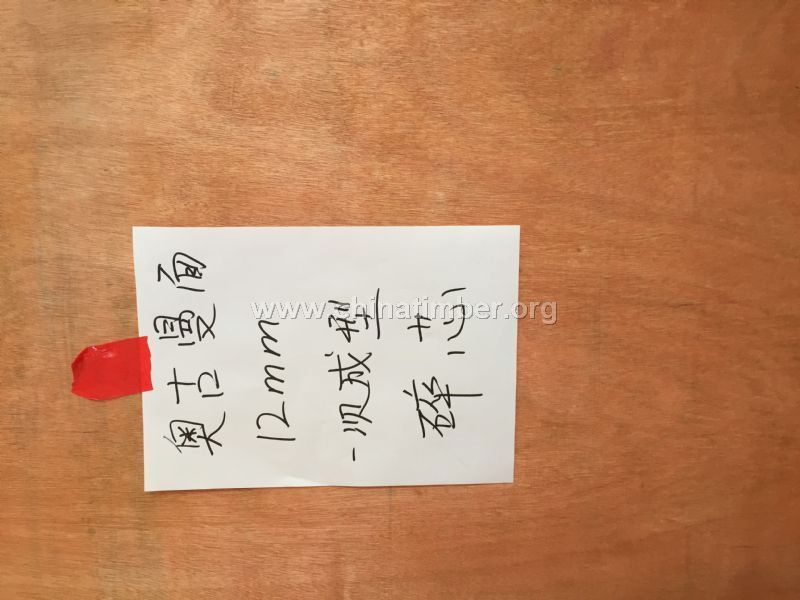 奥古曼面
12mm
一次成型
碎芯
www.chinatimber.org